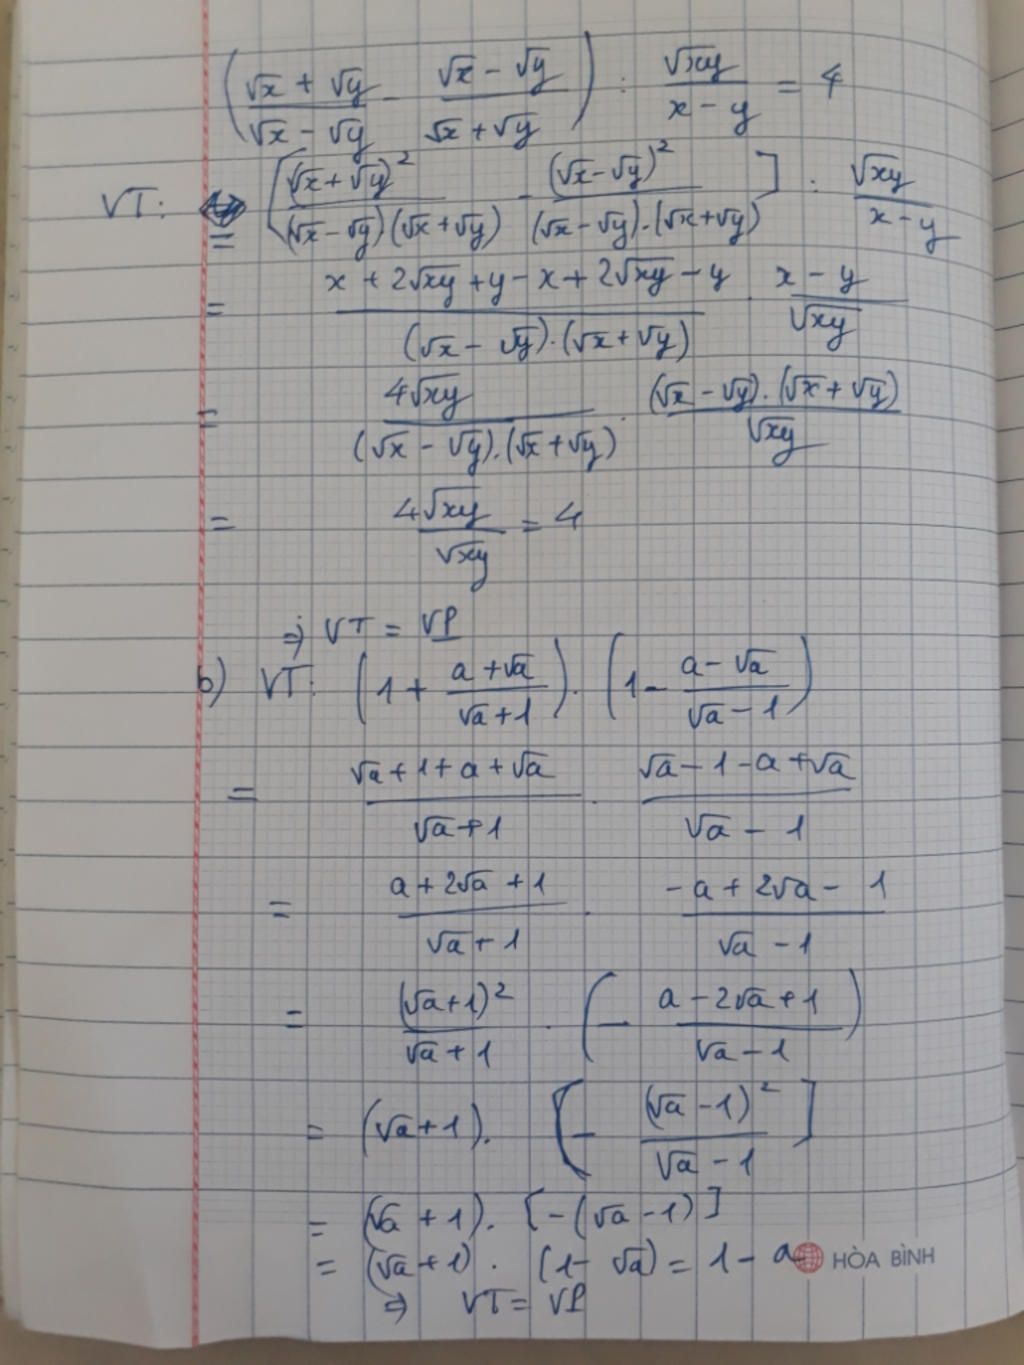 (√x + √y / √x - √y - √x - √y / √x + √y) : √xy / x - y = 4
VT: = [(√x + √y)² / (√x - √y)(√x + √y) - (√x - √y)² / (√x - √y).(√x + √y)] : √xy / x - y
= x + 2√xy + y - x + 2√xy - y / (√x - √y).(√x + √y) . x - y / √xy
= 4√xy / (√x - √y).(√x + √y) . (√x - √y).(√x + √y) / √xy
= 4√xy / √xy = 4
⇒ VT = VP
b) VT: (1 + a + √a / √a + 1) . (1 - a - √a / √a - 1)
= √a + 1 + a + √a / √a + 1 . √a - 1 - a + √a / √a - 1
= a + 2√a + 1 / √a + 1 . -a + 2√a - 1 / √a - 1
= (√a + 1)² / √a + 1 . (- a - 2√a + 1 / √a - 1)
= (√a + 1). [- (√a - 1)² / √a - 1]
= (√a + 1). [-(√a - 1)]
= (√a + 1) . (1 - √a) = 1 - a
HÒA BÌNH
⇒ VT = VP